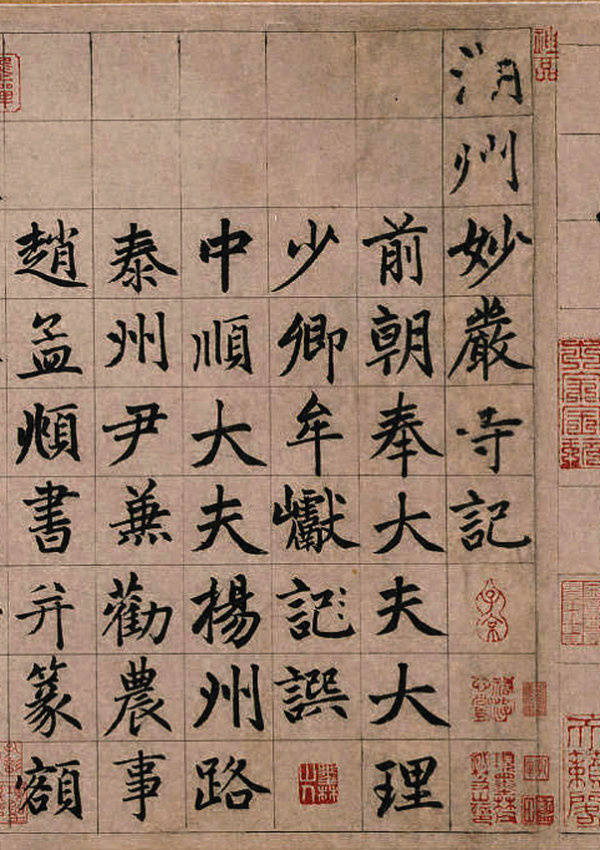 神品
天籟閣
湖州妙嚴寺記
前朝奉大夫大理
少卿牟巘記撰
中順大夫楊州路
泰州尹兼勸農事
趙孟頫書并篆額